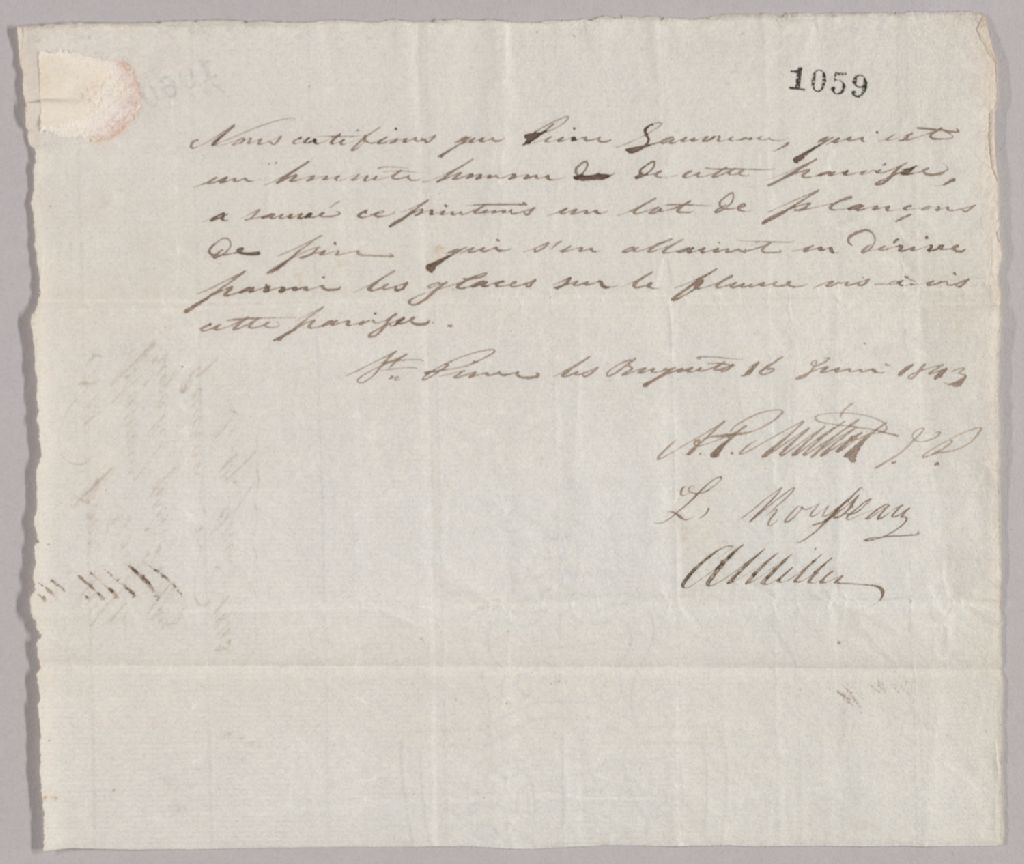 1059
Nous certifions que Pierre Gauvreau, qui est
un honnête homme de de cette paroisse,
a sauvé ce printems un lot de plançons
de pin qui s'en allaient en dérive
parmi les glaces sur le fleuve vis-à-vis
cette paroisse.
St. Pierre les Becquets 16 Juin 1843
A. P. J. P.
L. Rousseau